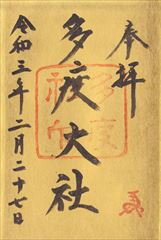 奉拝
多度大社
令和三年二月二十七日